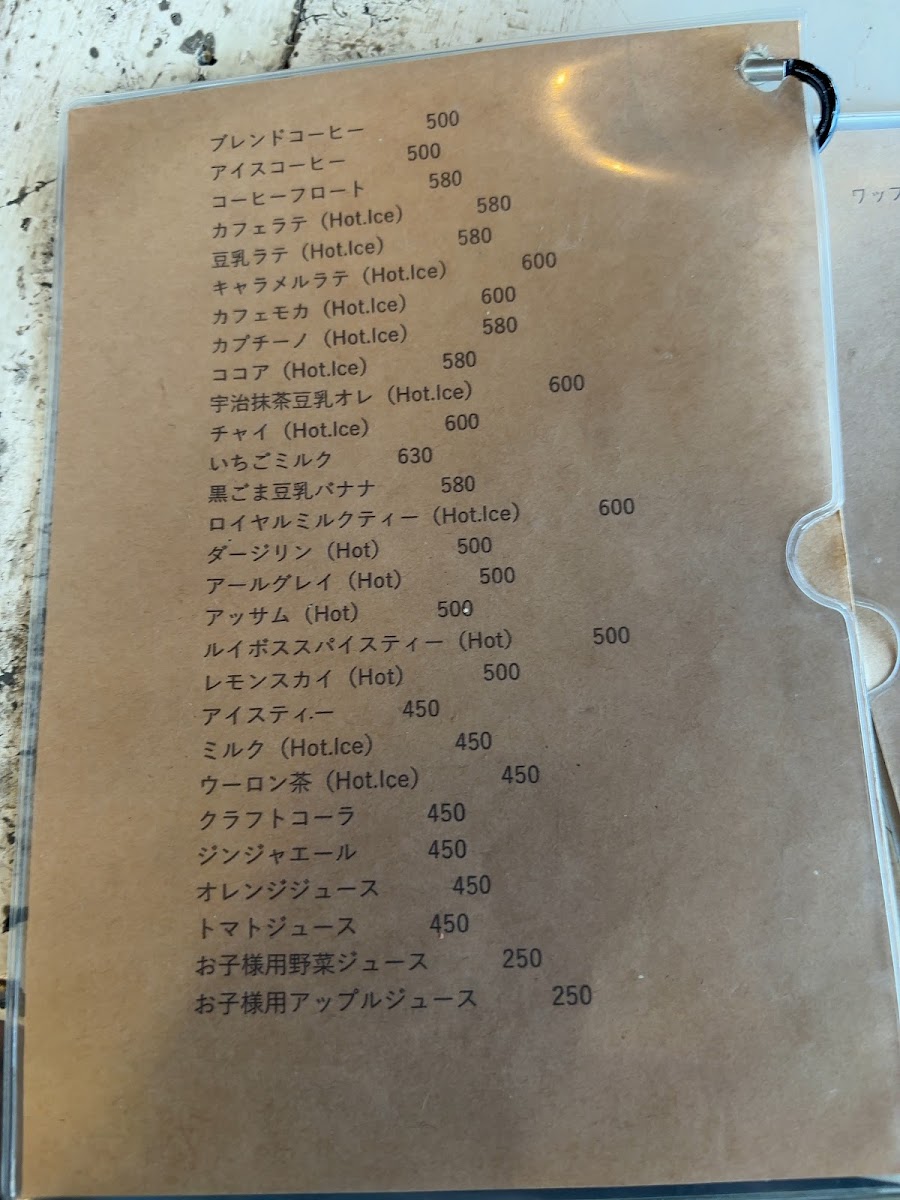 ブレンドコーヒー 500
アイスコーヒー 500
コーヒーフロート 580
カフェラテ（Hot.Ice） 580
豆乳ラテ（Hot.Ice） 580
キャラメルラテ（Hot.Ice） 600
カフェモカ（Hot.Ice） 600
カプチーノ（Hot.Ice） 580
ココア（Hot.Ice） 580
宇治抹茶豆乳オレ（Hot.Ice） 600
チャイ（Hot.Ice） 600
いちごミルク 630
黒ごま豆乳バナナ 580
ロイヤルミルクティー（Hot.Ice） 600
ダージリン（Hot） 500
アールグレイ（Hot） 500
アッサム（Hot） 500
ルイボススパイスティー（Hot） 500
レモンスカイ（Hot） 500
アイスティー 450
ミルク（Hot.Ice） 450
ウーロン茶（Hot.Ice） 450
クラフトコーラ 450
ジンジャエール 450
オレンジジュース 450
トマトジュース 450
お子様用野菜ジュース 250
お子様用アップルジュース 250